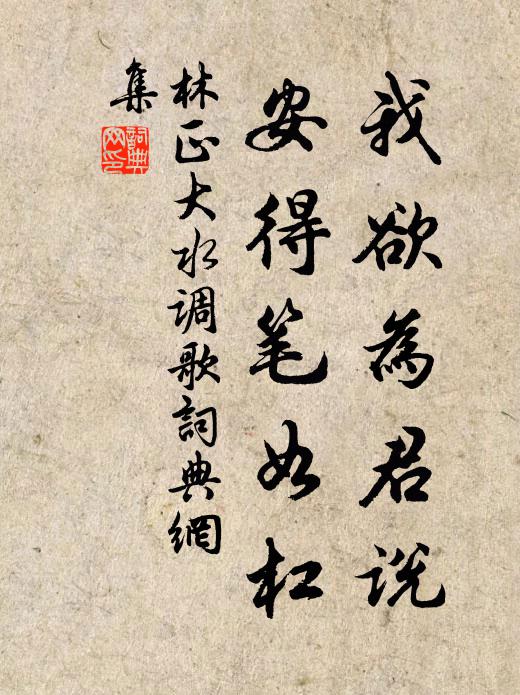 我欲為君説
安得笔如杠
林正大水调歌詞典網
集
詞典网印